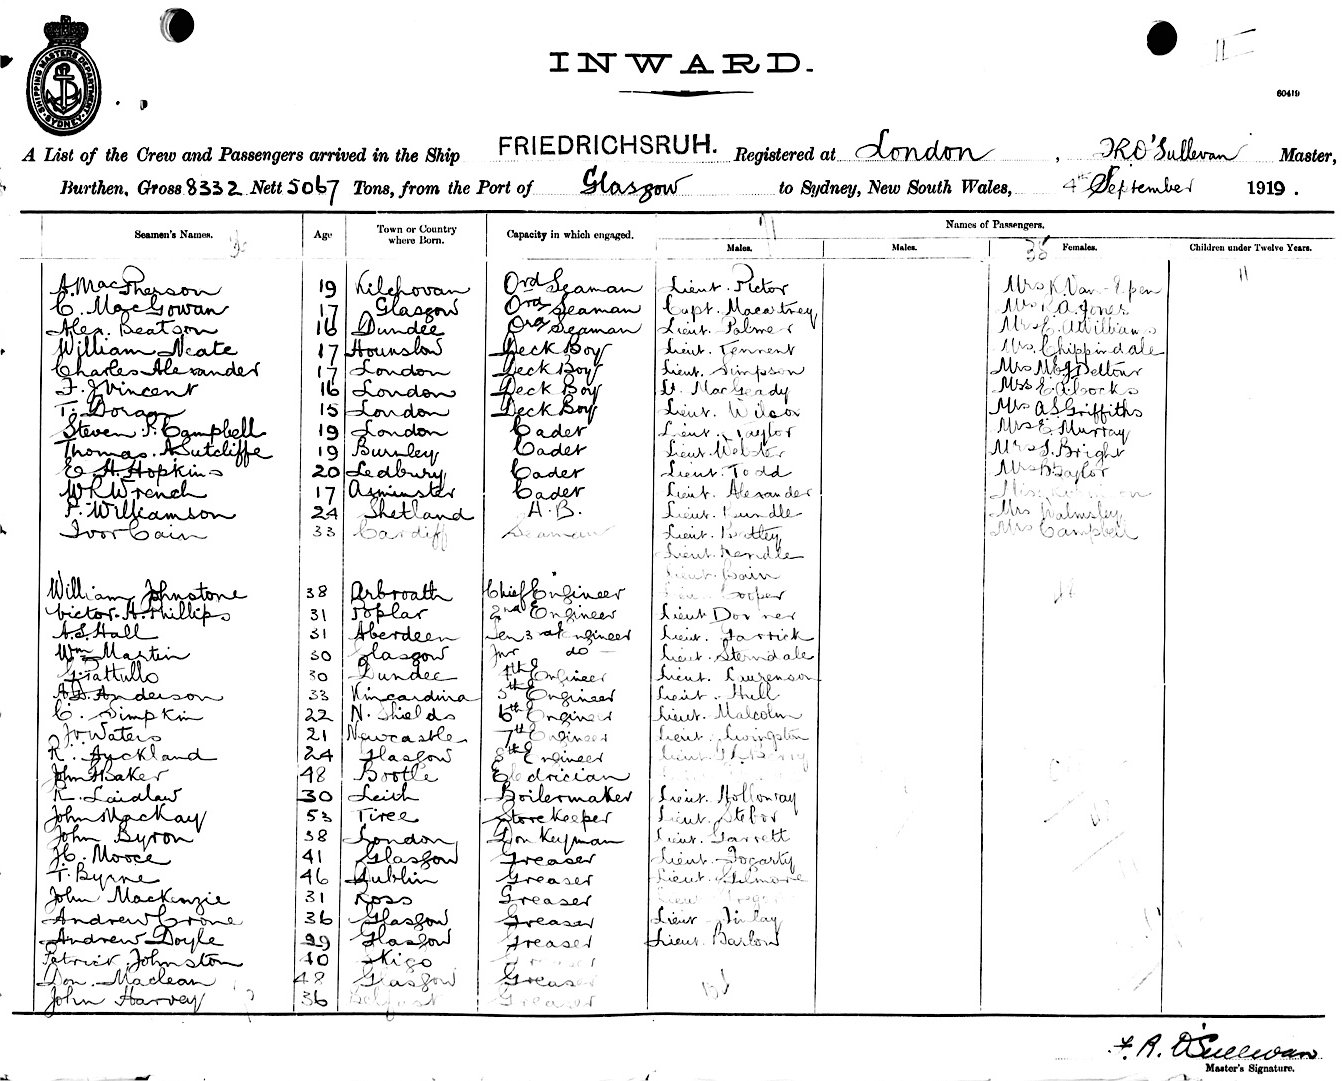 SHIPPING MASTERS DEPARTMENT SYDNEY
INWARD.
60419
A List of the Crew and Passengers arrived in the Ship FRIEDRICHSRUH. Registered at London, O'Sullivan Master,
Burthen, Gross 8332 Nett 5067 Tons, from the Port of Glasgow to Sydney, New South Wales, 4th September 1919.
Seamen's Names. Age Town or Country where Born. Capacity in which engaged. Names of Passengers.
Males. Males. Females. Children under Twelve Years.
A. MacPherson 19 Ord Seaman Lieut. Rictor Mrs K. Van-Epen
C. MacGowan 17 Glasgow Ord Seaman Capt. Macartney A. Jones
Alex. Beatson 16 Dundee Ord Seaman Lieut. Palmer Mrs E. Williams
William Neate 17 Hounslow Deck Boy Lieut. Tennent Mrs. Chippindale
Charles Alexander 17 London Deck Boy Lieut. Simpson Mrs
F. J Vincent 16 London Deck Boy Lt. MacGeady E.A.
T. Doran 15 London Deck Boy Lieut. Wilson Mrs A S Griffiths
Steven P. Campbell 19 London Cadet Lieut. Taylor Mrs E Murray
Thomas. A Sutcliffe 19 Burnley Cadet Lieut. Webster Mrs S. Bright
E H. Hopkins 20 Ledbury Cadet Lieut. Todd Mrs Taylor
W R Wrench 17 Axminster Cadet Lieut. Alexander
P. Williamson 24 Shetland A.B. Lieut. Rundle Mrs Walmsley
Ivor Cain 33 Cardiff Seaman Lieut. Mrs Campbell
Lieut. Kendle
Lieut. Bain
William Johnstone 38 Arbroath Chief Engineer Lieut. Cooper
Victor. H. Phillips 31 Poplar 2nd Engineer Lieut Dorner
A. S. Hall 31 Aberdeen Sen 3rd Engineer Lieut. Garrick
Wm Martin 30 Glasgow Jnr do Lieut. Sterndale
G Pattullo 30 Dundee 4th Engineer Lieut. Laurenson
A. D. Anderson 33 Kincardine 5th Engineer Lieut. Hill
C. Simpkin 22 N. Shields 6th Engineer Lieut. Malcolm
Jv Waters 21 Newcastle 7th Engineer Lieut. Livingston
R. Auckland 24 Glasgow 8th Engineer Lieut. Berry
John H Baker 48 Bootle Electrician
R. Laidlaw 30 Leith Boilermaker Lieut. Holloway
John MacKay 53 Tiree Storekeeper Lieut. Stebor
John Byron 38 London Donkeyman Lieut. Garrett
H. Moore 41 Glasgow Greaser Lieut. Fogarty
T. Byrne 46 Dublin Greaser Lieut. Gilmore
John MacKenzie 31 Ross Greaser
Andrew Crone 36 Glasgow Greaser Lieut Finlay
Andrew Doyle 39 Glasgow Greaser Lieut. Barlow
Patrick Johnston 40 Greaser
Don. Maclean 48 Glasgow Greaser
John Harvey 36 Belfast Greaser
O'Sullivan
Master's Signature.